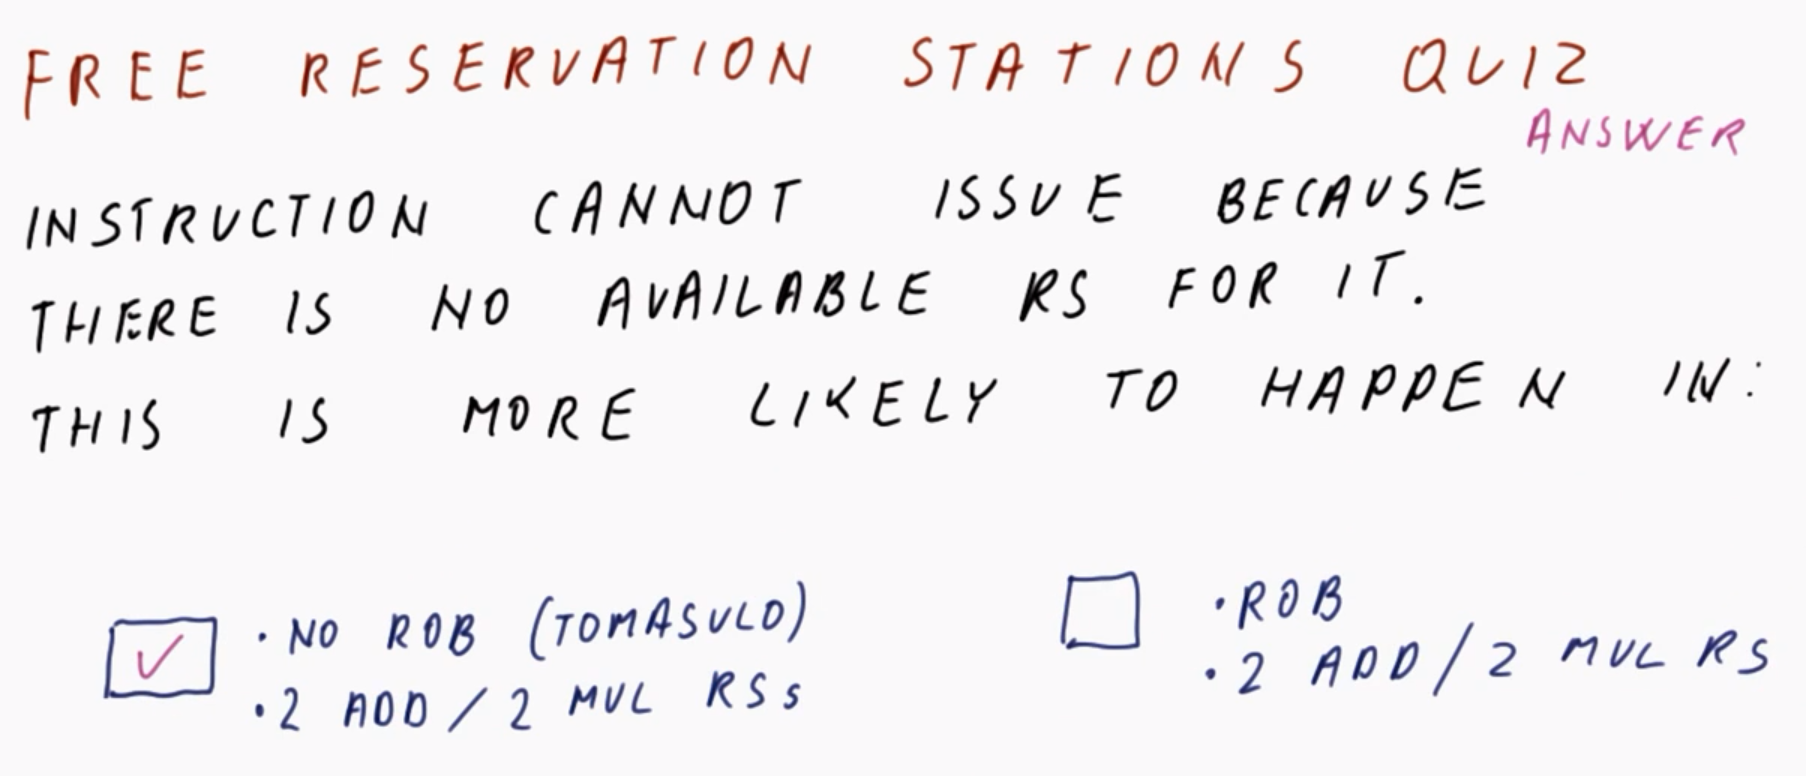 FREE RESERVATION STATIONS QUIZ
ANSWER
INSTRUCTION CANNOT ISSUE BECAUSE
THERE IS NO AVAILABLE RS FOR IT.
THIS IS MORE LIKELY TO HAPPEN IN:
• NO ROB (TOMASULO)
• 2 ADD / 2 MUL RSs
• ROB
• 2 ADD / 2 MUL RS